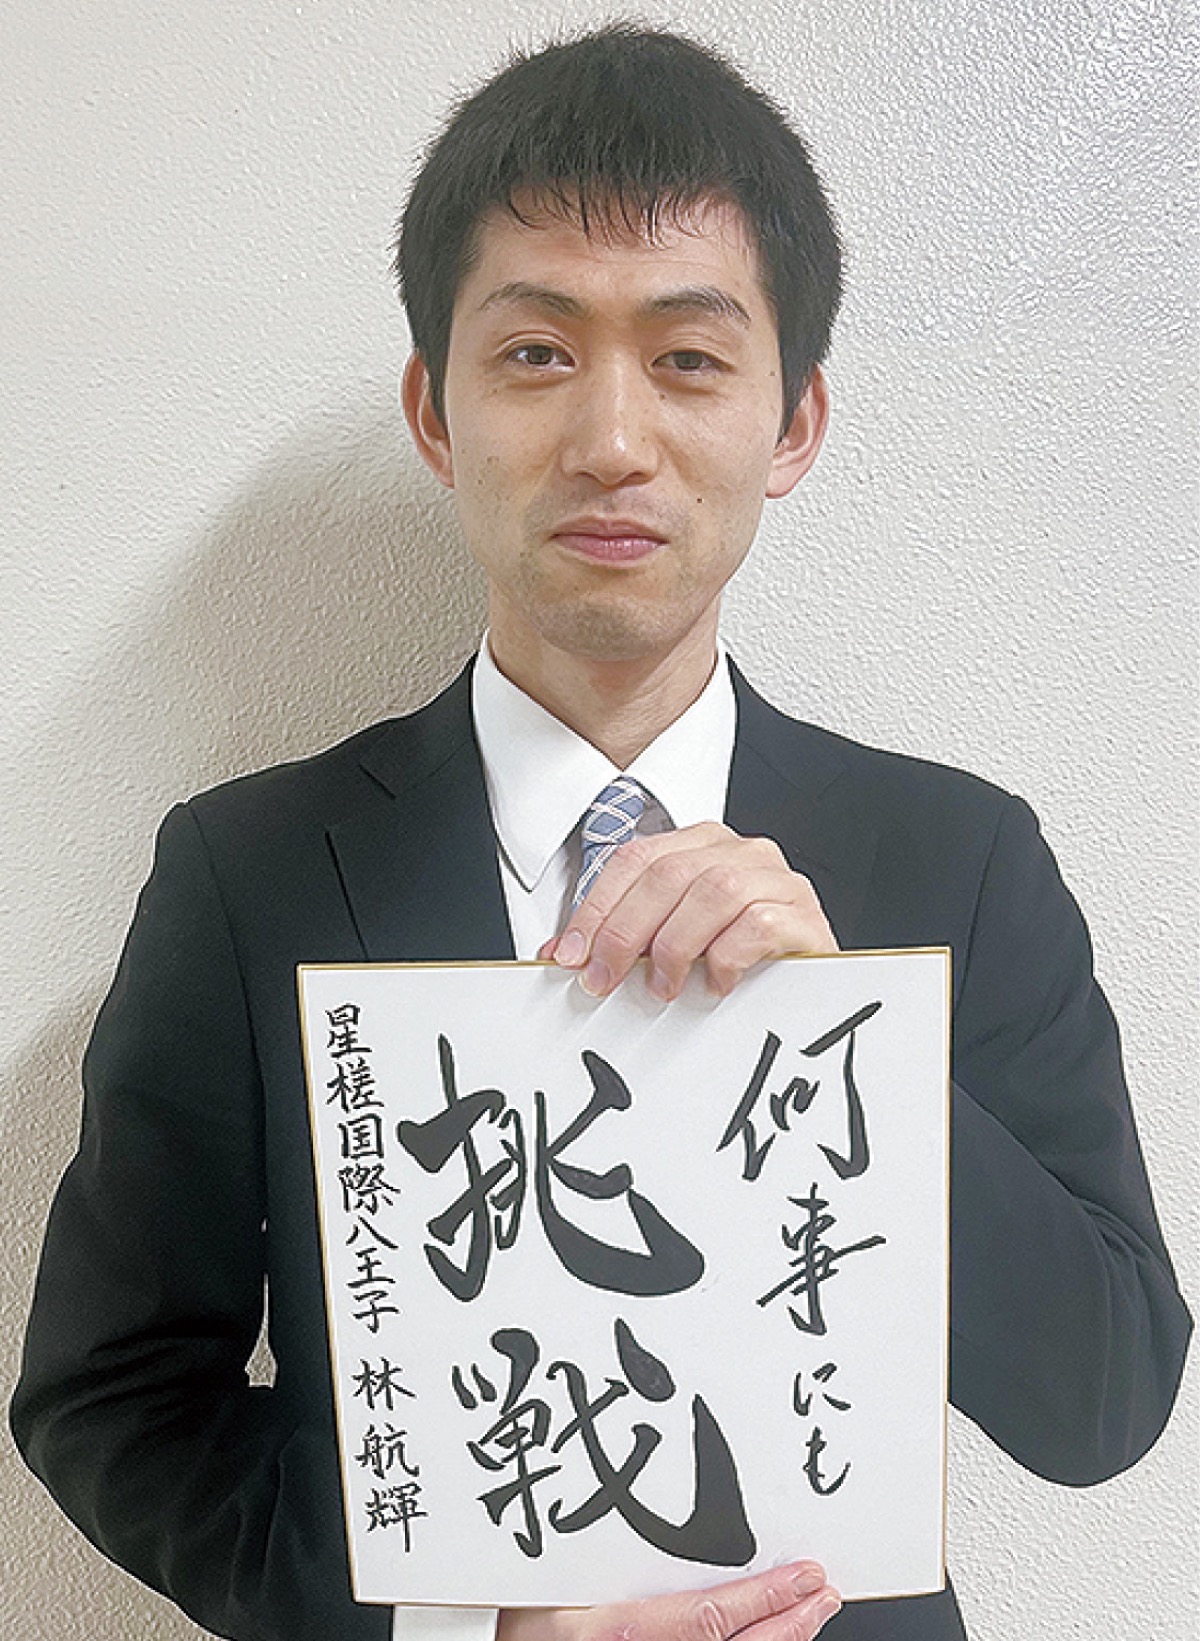 何事にも
挑戦
星槎国際八王子 林航輝